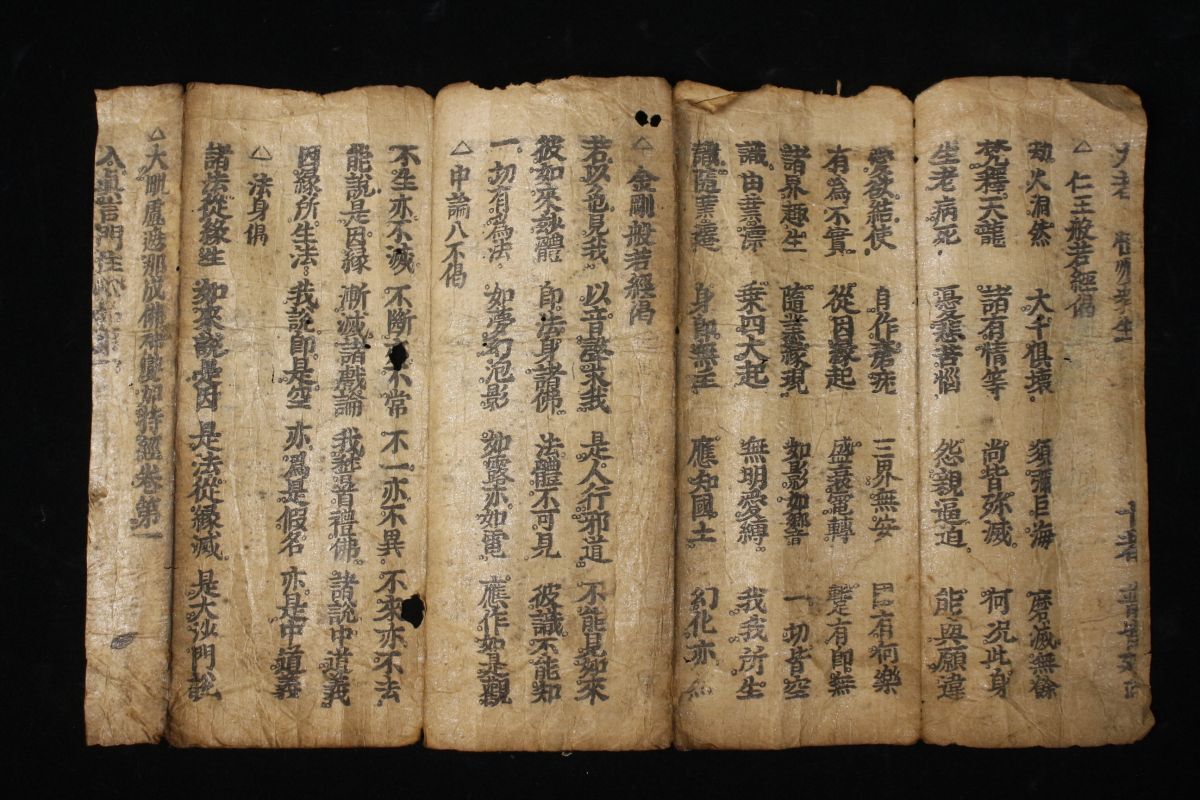 △ 仁王般若經偈
劫火洞然 大千俱壞 須彌巨海 磨滅無餘
梵釋天龍 諸有情等 尚皆殄滅 何況此身
生老病死 憂悲苦惱 怨親逼迫 能與願違
愛欲結使 自作瘡疣 三界無安 國有何樂
有為不實 從因緣起 盛衰電轉 蹔有即無
諸界趣生 隨業緣現 如影如響 一切皆空
識由業漂 乗四大起 無明愛縛 我我所生
識隨業遷 身即無主 應知國土 幻化亦然
△ 金剛般若經偈
若以色見我 以音聲求我 是人行邪道 不能見如來
彼如來玅體 即法身諸佛 法體不可見 彼識不能知
一切有爲法 如夢幻泡影 如露亦如電 應作如是觀
△ 中論八不偈
不生亦不滅 不斷不常 不一亦不異 不來亦不去
能說是因緣 漸滅諸戲論 我稽首禮佛 諸說中道義
因緣所生法 我說即是空 亦爲是假名 亦是中道義
△ 法身偈
諸法從緣生 如來說是因 是法從緣滅 是大沙門說
△ 大毗盧遮那成佛神變加持經卷第一
入眞言門住心